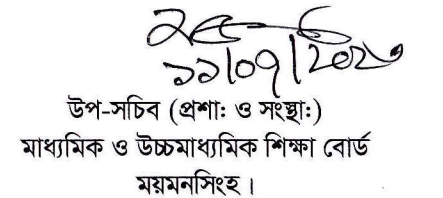 ১১/০৭/২০২৩
উপ-সচিব (প্রশা: ও সংস্থা:)
মাধ্যমিক ও উচ্চমাধ্যমিক শিক্ষা বোর্ড
ময়মনসিংহ।